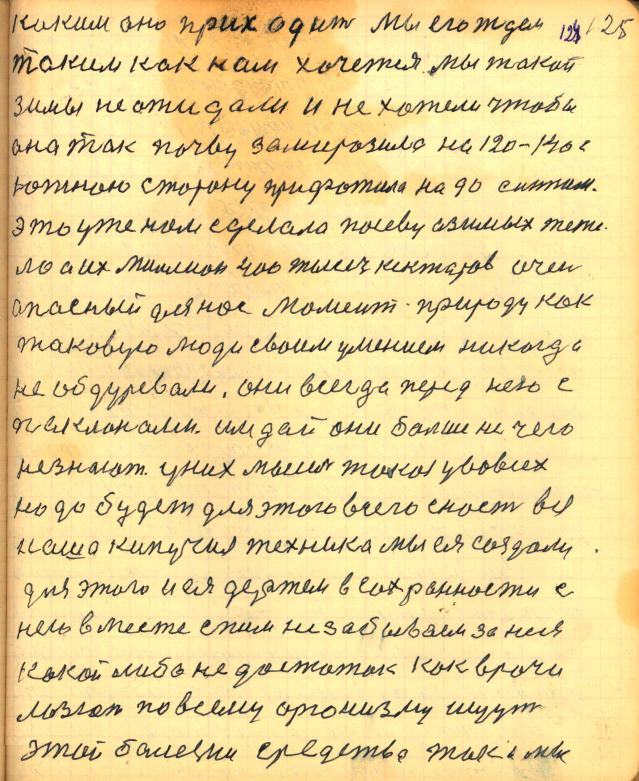 каким оно приходит мы его ждем 124 125
таким как нам хочется мы такой
зимы не ожидали и не хотели чтобы
она так почву замерозила на 120-140 с
южною сторону
это уже нам сделала посеву озимых теже.
ло а их милион 400 тысец гектаров очен
апасный для нас момент. природу как
таковую люди своим умением никогда
не обдуревали, они всегда перед нею с
паклонами. им дай они болше не чего
незнают. у них мысля такая у вовсех
надо будет для этого всего сност вся
наша кипучия техника мы ея создали
для этого и ея держем в сохранности с
нею вместе спим не забываем за нея
какой либа не достаток как врачи
лазиют по всему организму ищут
этой болезни средства так и мы